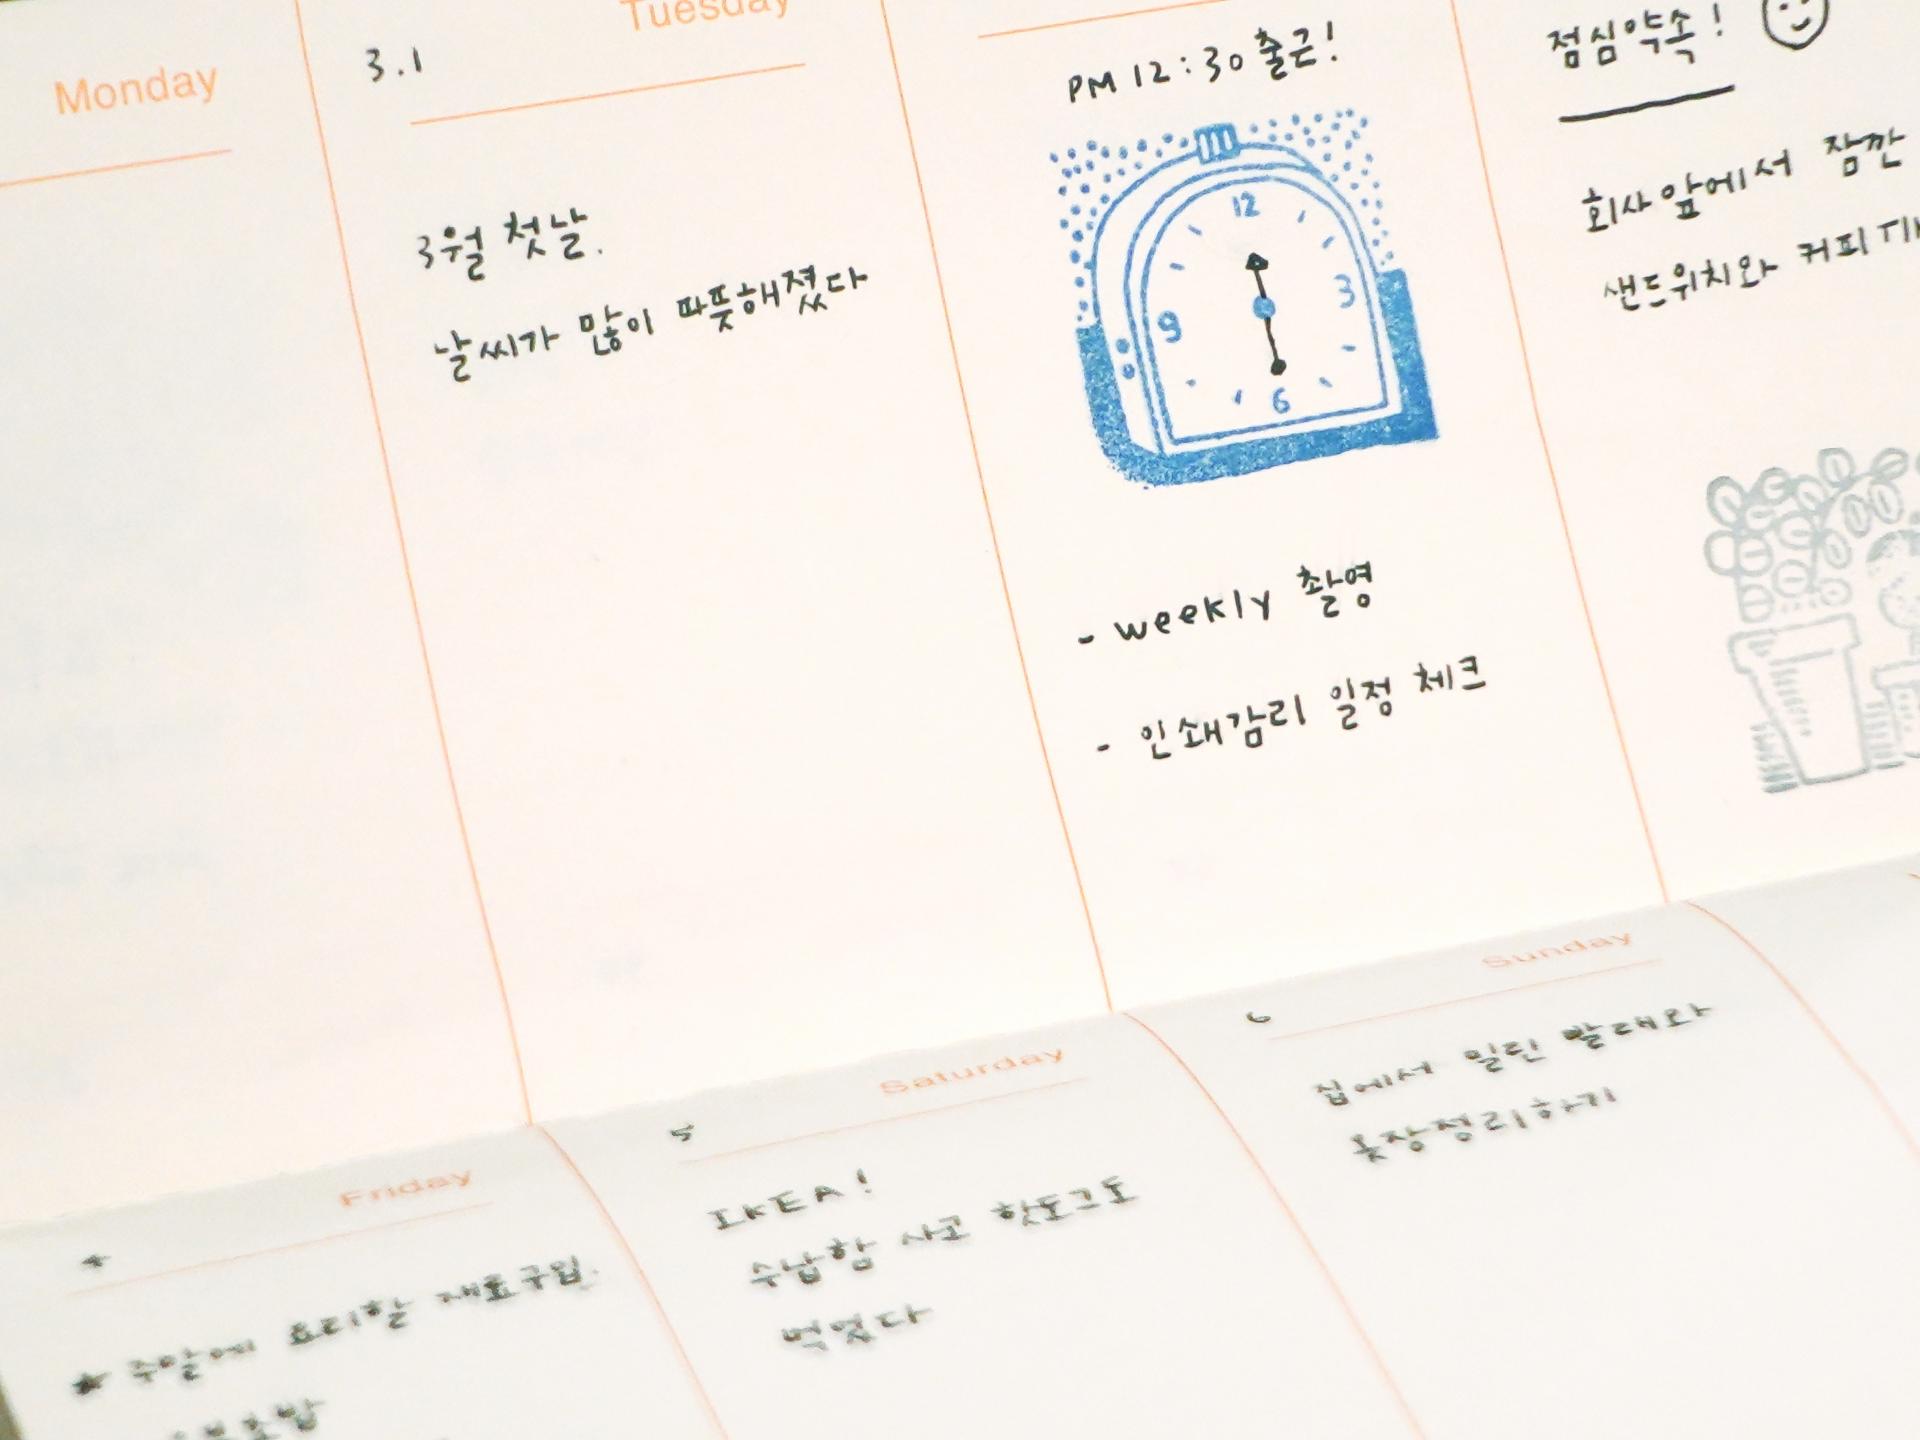 Monday
3.1
Tuesday
3월 첫날.
날씨가 많이 따뜻해졌다
PM 12:30 출근!
12
3
6
9
- weekly 촬영
- 인쇄감리 일정 체크
점심약속!
회사앞에서 잠깐
샌드위치와 커피
4
Friday
★ 주말에 요리할 재료구입.
5
Saturday
IKEA!
수납함 사고 핫도그도
먹었다
6
Sunday
집에서 밀린 빨래와
옷장정리하기